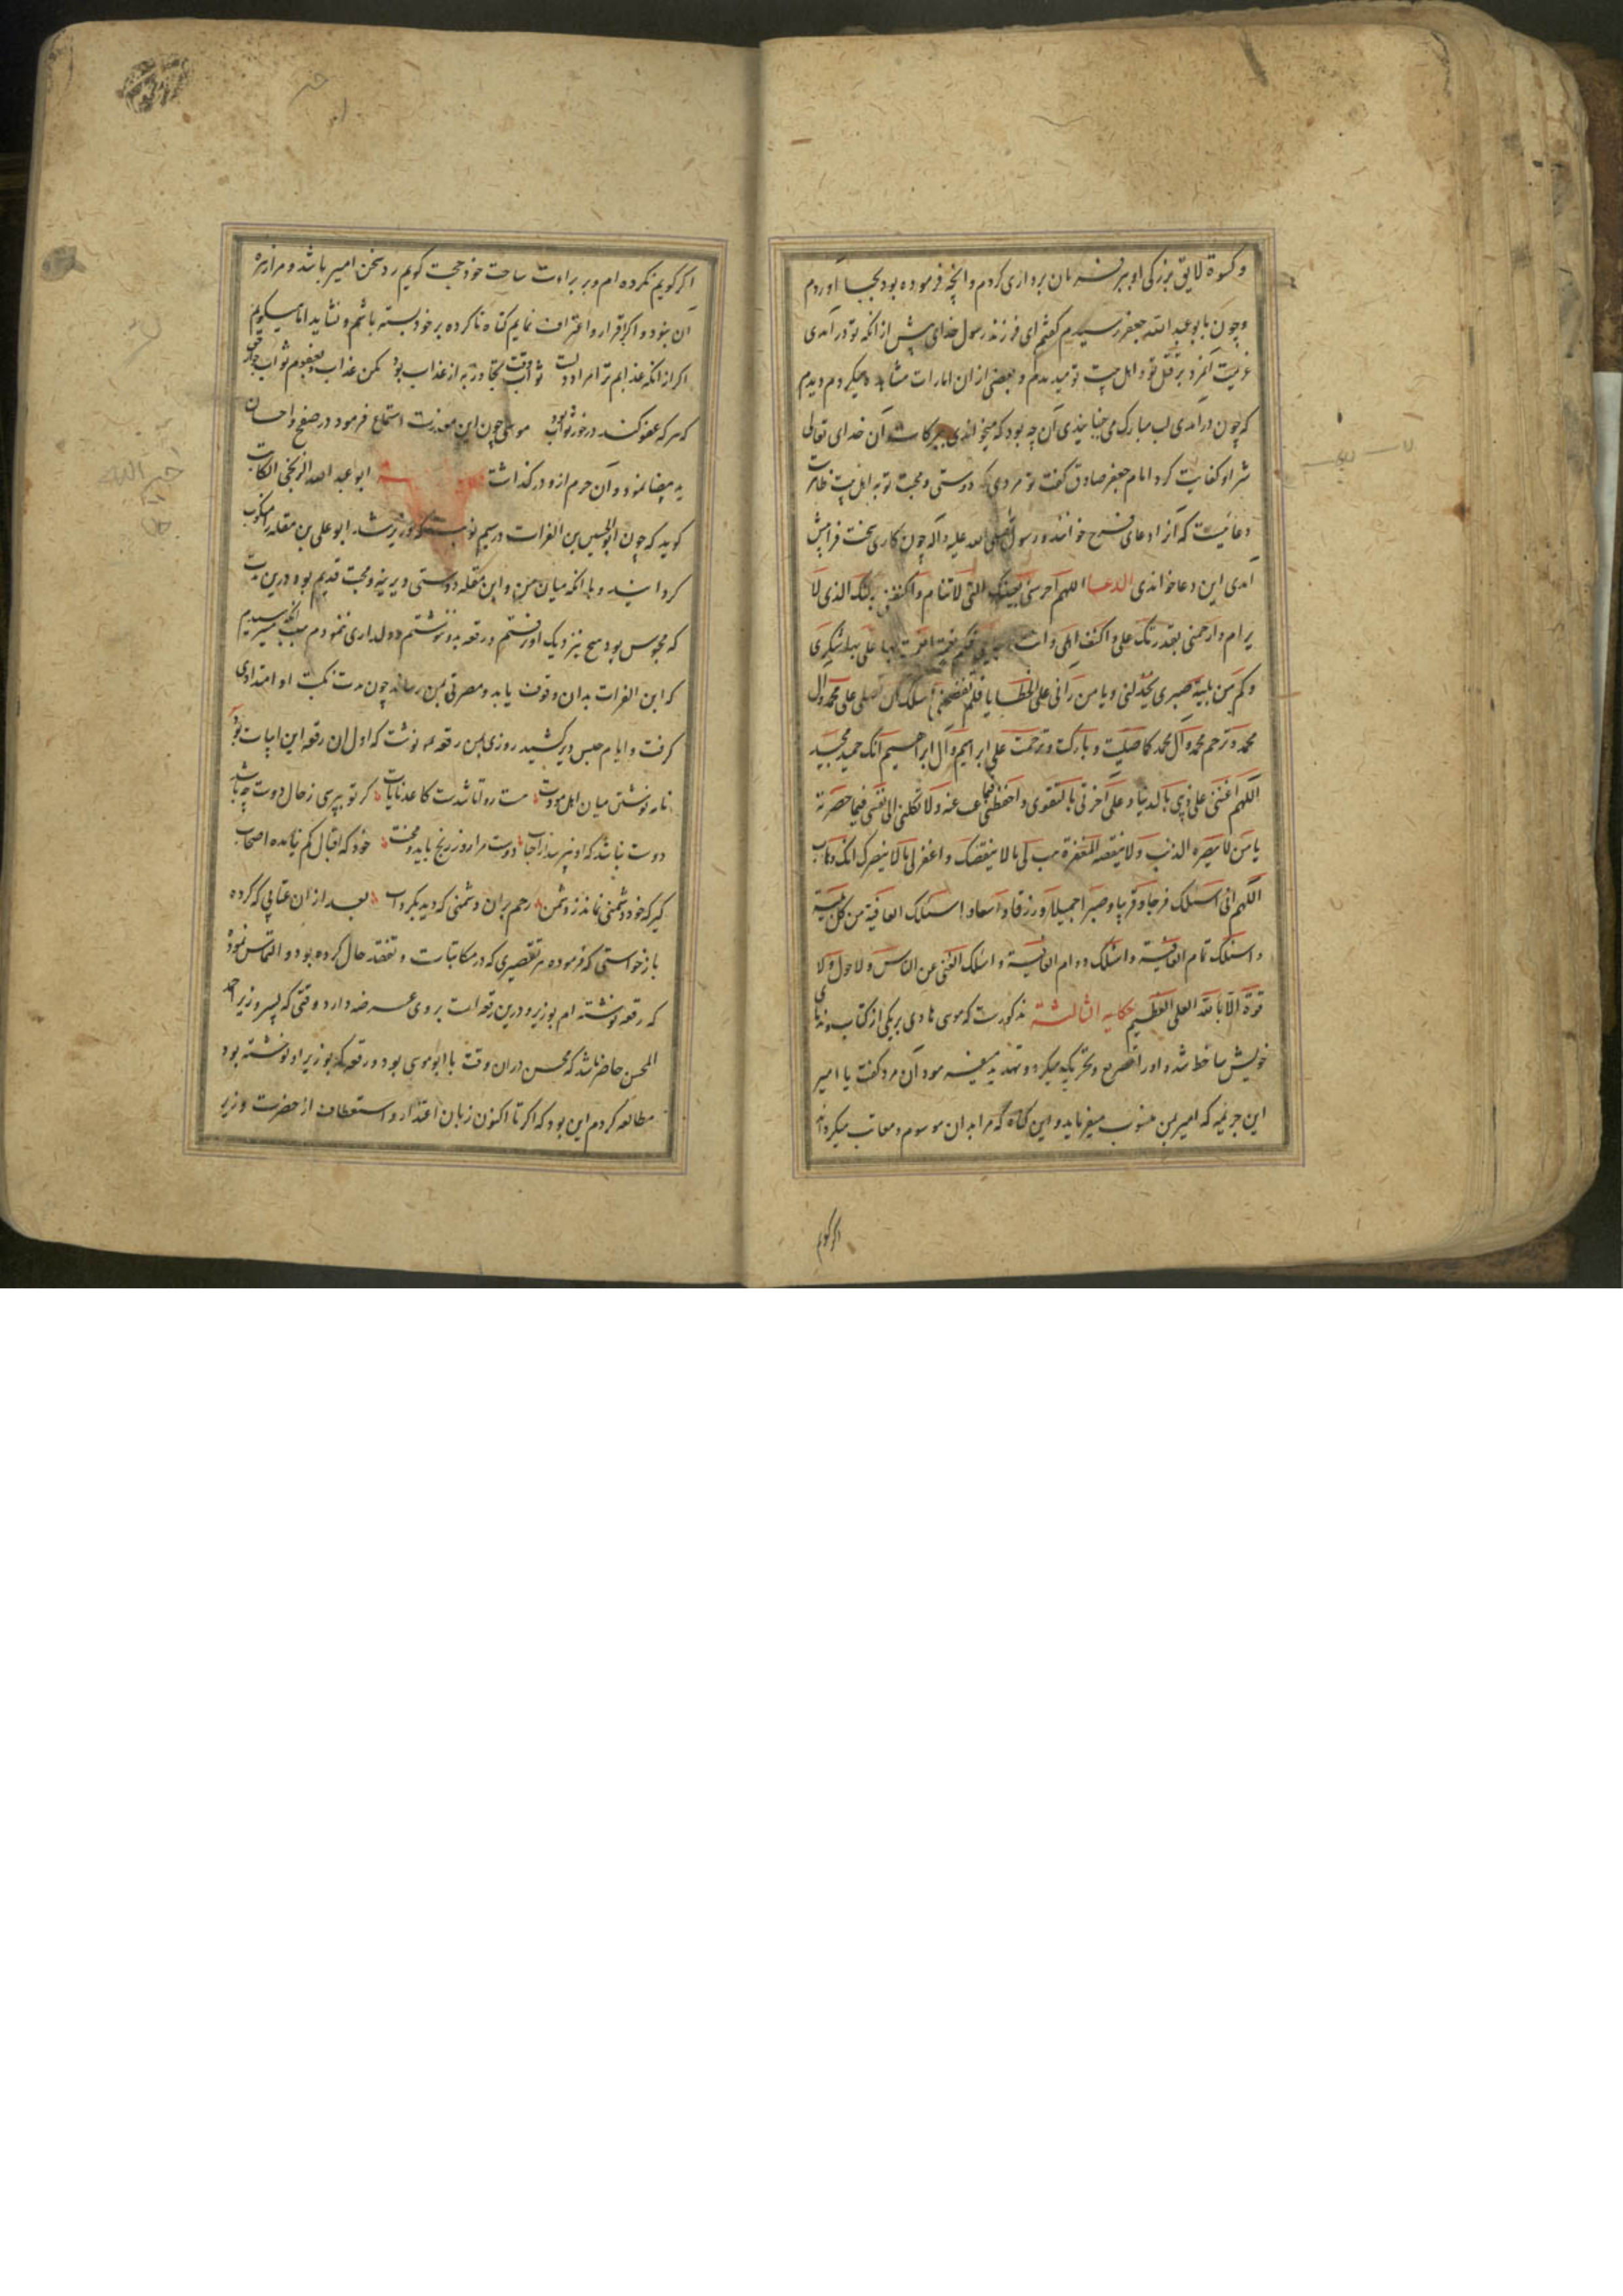 وکسوة لایق بزرکی او بهر فرمان برداری کردم وانچه فرموده بود بجا آوردم
وچون بابو عبد الله جعفر رسیدم کفتم ای فرزند رسول خدای پیش از انکه تو در آمدی
عزیمت آنمرد بر قتل تو و اهل بیت تو میدیدم و بعضی از ان امارات مشاهده میکردم ودیدم
که چون درآمدی لب مبارک می جنبانیدی آن چه بود که میخواندی ببرکات آن خدای تعالی
شر او کفایت کرد امام جعفر صادق کفت تو مردی که دوستی و محبت تو به اهل بیت ظاهرست
دعائیست که آنرا دعای فرج خوانند و رسول صلی الله علیه وآله چون کاری سخت فرا پیش
آمدی این دعا خواندی الدعا اللهم احرسنی بعینک التی لا تنام واکنفنی برکنک الذی لا
یرام وارحمنی بقدرتک علی
وکم من بلیة صبری یخذلنی ویا من رآنی علی الخطایا فلم تفضحنی اسئلک ان تصلی علی محمد وآل
محمد وترحم محمد وآل محمد کما صلیت وبارکت وترحمت علی ابراهیم وآل ابراهیم انک حمید مجید
اللهم اعنی علی دینی بالدنیا وعلی آخرتی بالتقوی واحفظنی فیما غبت عنه ولا تکلنی الی نفسی فیما حضرته
یا من لا تضره الذنوب ولا ینقصه المغفرة هب لی ما لا ینقصک واغفر لی ما لا یضرک انک وهاب
اللهم انی اسئلک فرجا قریبا وصبرا جمیلا ورزقا واسعا واسئلک العافیة من کل بلیة
واسئلک تمام العافیة واسئلک دوام العافیة واسئلک الغنی عن الناس ولا حول ولا
قوة الا بالله العلی العظیم حکایه الثالثة مذکورست که موسی هادی بر یکی از کتاب
خویش ساخط شد و اورا تقریع میکرد و تهدید آن مرد کفت یا امیر
این جریمه که امیر بمن منسوب میفرماید و این کناه که مرا بدان موسوم و معاتب میکرداند
اکر کویم
اکر کویم نکرده ام و بر براءت ساحت خود حجت کویم رد سخن امیر باشد و مرا زهره
آن نبود و اکر اقرار و اعتراف نمایم کناه ناکرده بر خود بسته باشم و نشاید اما میکویم
اکر از انکه عذابم ترا مراد ولیست ثواب وقت تجاوز به از عذاب بود مکن عذاب بعفوم
که هر که عفو کند در خور ثواب بود موسی چون این معذرت استماع فرمود در صفح و احسان
ید بیضا نمود و آن جرم ازو در کذاشت ابو عبد الله الزنجی الکاتب
کوید که چون ابو الحسین بن الفرات در سیم نوبت که وزیر شد ابو علی بن مقله را منکوب
کردانید و با انکه میان من و ابن مقله دوستی دیرینه و محبت قدیم بود درین مدت
که محبوس بود هیچ بنزدیک او نرفتم و رقعه بدو ننوشتم و دلداری ننمودم سبب انکه میترسیدم
که ابن الفرات بدان وقوف یابد و مضرتی بمن رساند چون مدت نکبت او امتدادی
کرفت و ایام حبس دیر کشید روزی بمن رقعه نوشت که اول ان رقعه این ابیات بود
نامه نوشتن میان اهل مودت هست روا یا شدت کاغد نایاب کر تو بپرسی ز حال دوست چه باشد
دوست نباشد که او نپرسد از احباب دوست مرا روز رنج باید و محنت خود که اقبال کم نیامده اصحاب
کیر که خود دشمنی نماند ز دشمن رحم بران دشمنی که دید بکرداب بعد از ان عتابی که کرده
بازخواستی که فرموده هر تقصیری که در مکاتبات و تفقد حال کرده بود و التماس نموده
که رقعه نوشته ام بوزیر و درین رقعه است بر وی عرضه دارد وقتی که پسر وزیر
المحسن حاضر باشد که محسن دران وقت با ابو موسی بود و رقعه که بوزیر او نوشته بود
مطالعه کردم این بود که اکر تا اکنون زبان اعتذار و استعطاف از حضرت وزیر